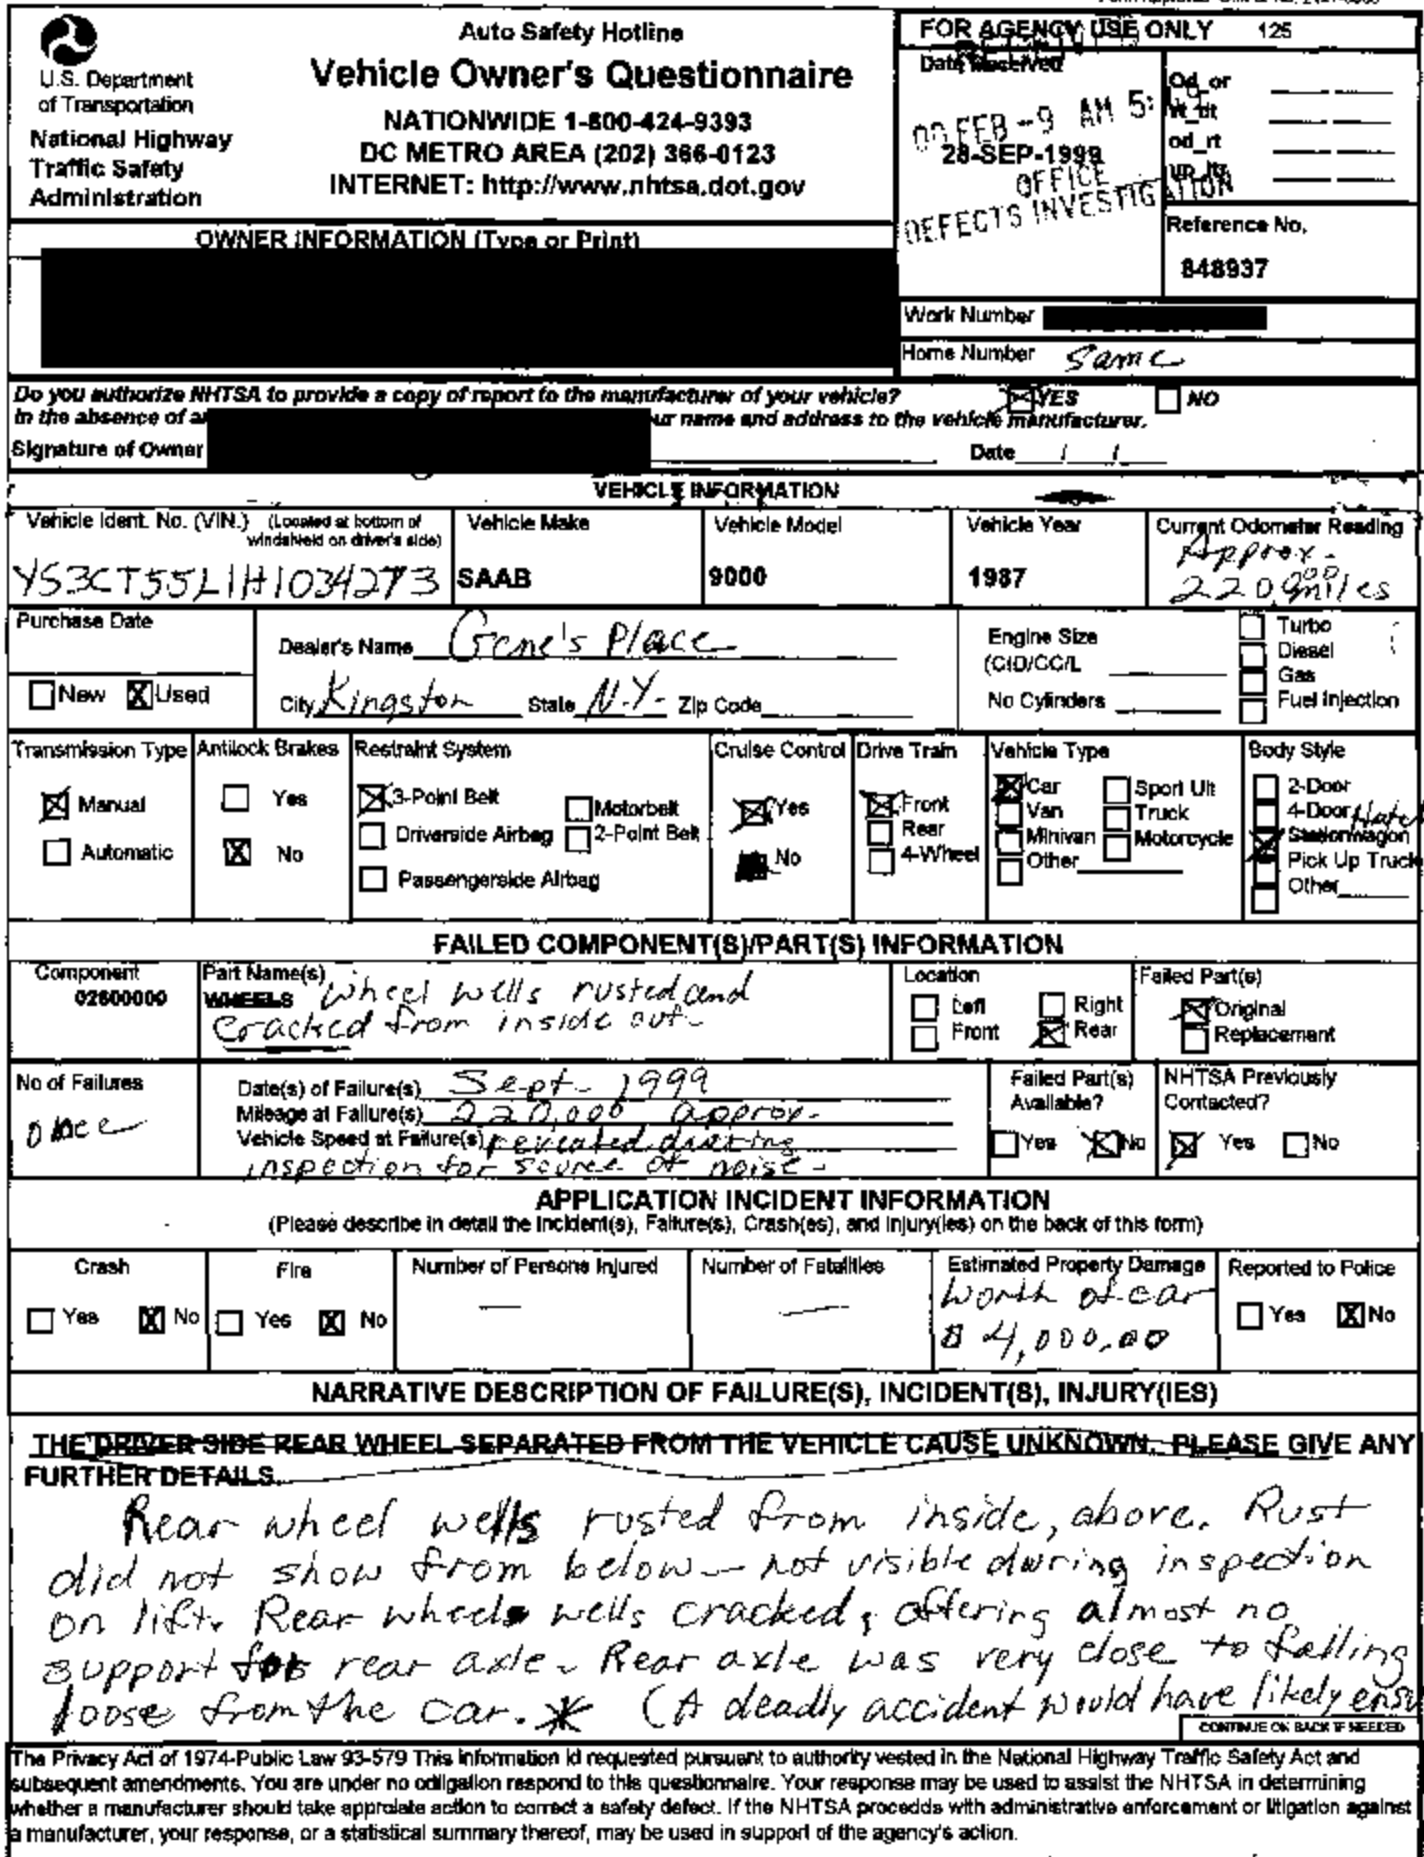 Auto Safety Hotline
Vehicle Owner's Questionnaire
NATIONWIDE 1-800-424-9393
DC METRO AREA (202) 366-0123
INTERNET: http://www.nhtsa.dot.gov
U.S. Department
of Transportation
National Highway
Traffic Safety
Administration
FOR AGENCY USE ONLY 125
Date Received
00 FEB -9 AM 5:
28-SEP-1999
OFFICE
DEFECTS INVESTIGATION
Od_or
od_rt
Reference No.
848937
OWNER INFORMATION (Type or Print)
Work Number
Home Number Same
Do you authorize NHTSA to provide a copy of report to the manufacturer of your vehicle? YES NO
In the absence of a ur name and address to the vehicle manufacturer.
Signature of Owner Date / /
VEHICLE INFORMATION
Vehicle Ident. No. (VIN.) (Located at bottom of
windshield on driver's side)
YS3CT55L1H1034273
Vehicle Make
SAAB
Vehicle Model
9000
Vehicle Year
1987
Current Odometer Reading
Approx.
220,000 miles
Purchase Date
New Used
Dealer's Name Gene's Place
City Kingston State N.Y. Zip Code
Engine Size
(CID/CC/L
No Cylinders
Turbo
Diesel
Gas
Fuel Injection
Transmission Type
Manual
Automatic
Antilock Brakes
Yes
No
Restraint System
3-Point Belt
Motorbelt
Driverside Airbag
2-Point Belt
Passengerside Airbag
Cruise Control
Yes
No
Drive Train
Front
Rear
4-Wheel
Vehicle Type
Car
Van
Minivan
Other
Sport Ult
Truck
Motorcycle
Body Style
2-Door
4-Door Hatch
Stationwagon
Pick Up Truck
Other
FAILED COMPONENT(S)/PART(S) INFORMATION
Component
02600000
Part Name(s)
WHEELS wheel wells rusted and
cracked from inside out-
Location
Left Right
Front Rear
Failed Part(s)
Original
Replacement
No of Failures
once
Date(s) of Failure(s) Sept- 1999
Mileage at Failure(s) 220,000 approx-
Vehicle Speed at Failure(s) revealed during
inspection for source of noise-
Failed Part(s)
Available?
Yes No
NHTSA Previously
Contacted?
Yes No
APPLICATION INCIDENT INFORMATION
(Please describe in detail the Incident(s), Failure(s), Crash(es), and Injury(ies) on the back of this form)
Crash
Yes No
Fire
Yes No
Number of Persons Injured
—
Number of Fatalities
—
Estimated Property Damage
Worth of car
$ 4,000.00
Reported to Police
Yes No
NARRATIVE DESCRIPTION OF FAILURE(S), INCIDENT(S), INJURY(IES)
THE DRIVER SIDE REAR WHEEL SEPARATED FROM THE VEHICLE CAUSE UNKNOWN. PLEASE GIVE ANY
FURTHER DETAILS.
Rear wheel wells rusted from inside, above. Rust
did not show from below - not visible during inspection
on lift. Rear wheel wells cracked, offering almost no
support for rear axle. Rear axle was very close to falling
loose from the car.* (A deadly accident would have likely ensu
CONTINUE ON BACK IF NEEDED
The Privacy Act of 1974-Public Law 93-579 This information id requested pursuant to authority vested in the National Highway Traffic Safety Act and
subsequent amendments. You are under no odligation respond to this questionnaire. Your response may be used to assist the NHTSA in determining
whether a manufacturer should take approiate action to correct a safety defect. If the NHTSA procedds with administrative enforcement or litigation against
a manufacturer, your response, or a statistical summary thereof, may be used in support of the agency's action.